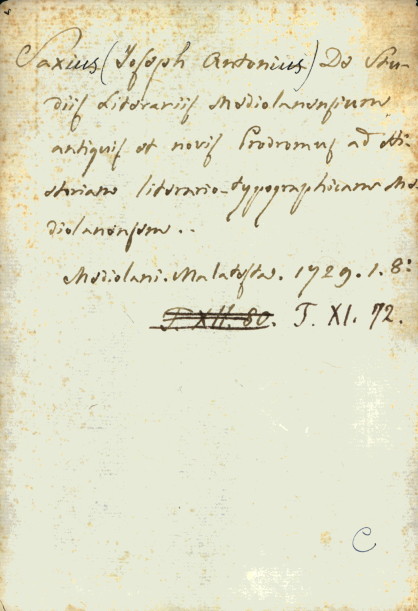 Saxius (Joseph Antonius) De Stu-
diis Literariis Mediolanensium
antiquis et novis Prodromus ad Hi-
storiam literario-typographicam Me-
diolanensem..
Mediolani. Malatesta. 1729. 1. 8:
P. XII. 80. T. XI. 72.
C